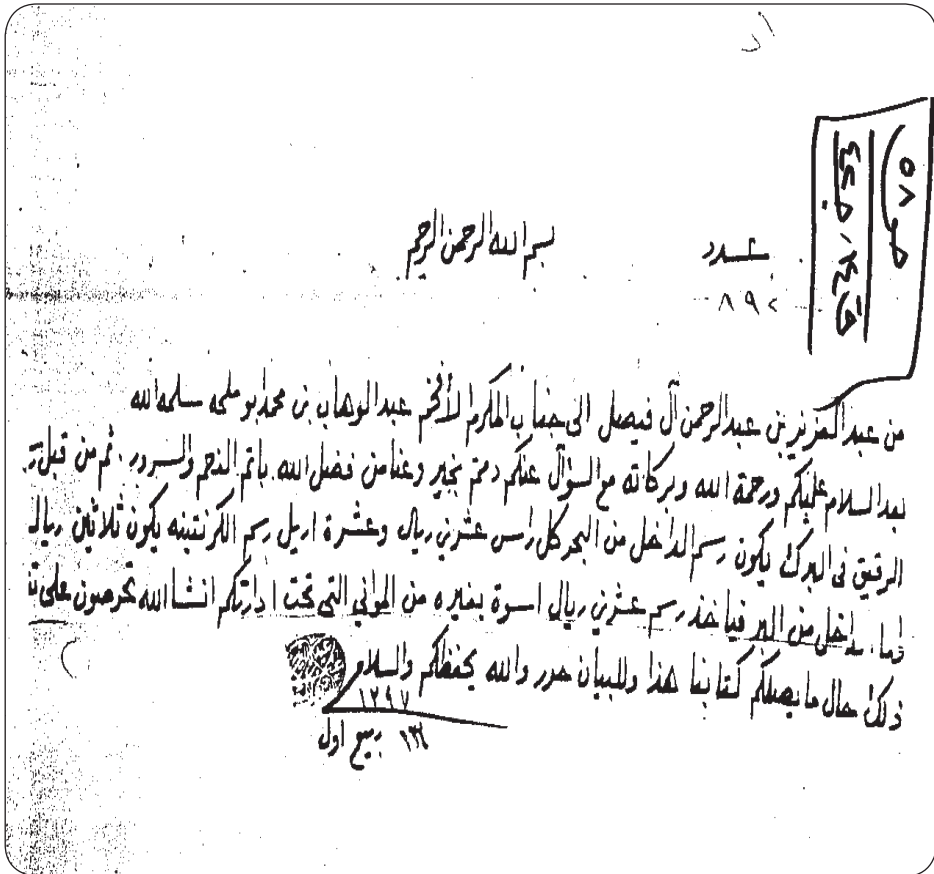 بسم الله الرحمن الرحيم
عدد
٨٩٢
ص ٥٨
من عبد العزيز بن عبد الرحمن آل فيصل الى جناب المكرم الأفخم عبد الوهاب بن محمد بو ملحه سلمه الله
بعد السلام عليكم ورحمة الله وبركاته مع السؤال عنكم دمتم بخير وعنا من فضل الله باتم النعم والسرور . ثم من قبل
الرقيق في البرك يكون رسم الداخل من البحر كل راس عشرين ريال وعشرة اريل رسم الكرنتينه يكون ثلاثين ريال
وما داخل من البر فياخذ رسم عشرين ريال اسوة بغيره من الموانئ التي تحت ادارتكم انشا الله تحرصون على
ذلك حال ما يصلكم كتابنا هذا وللبيان حرر والله يحفظكم والسلام
١٢٩٧
ربيع اول